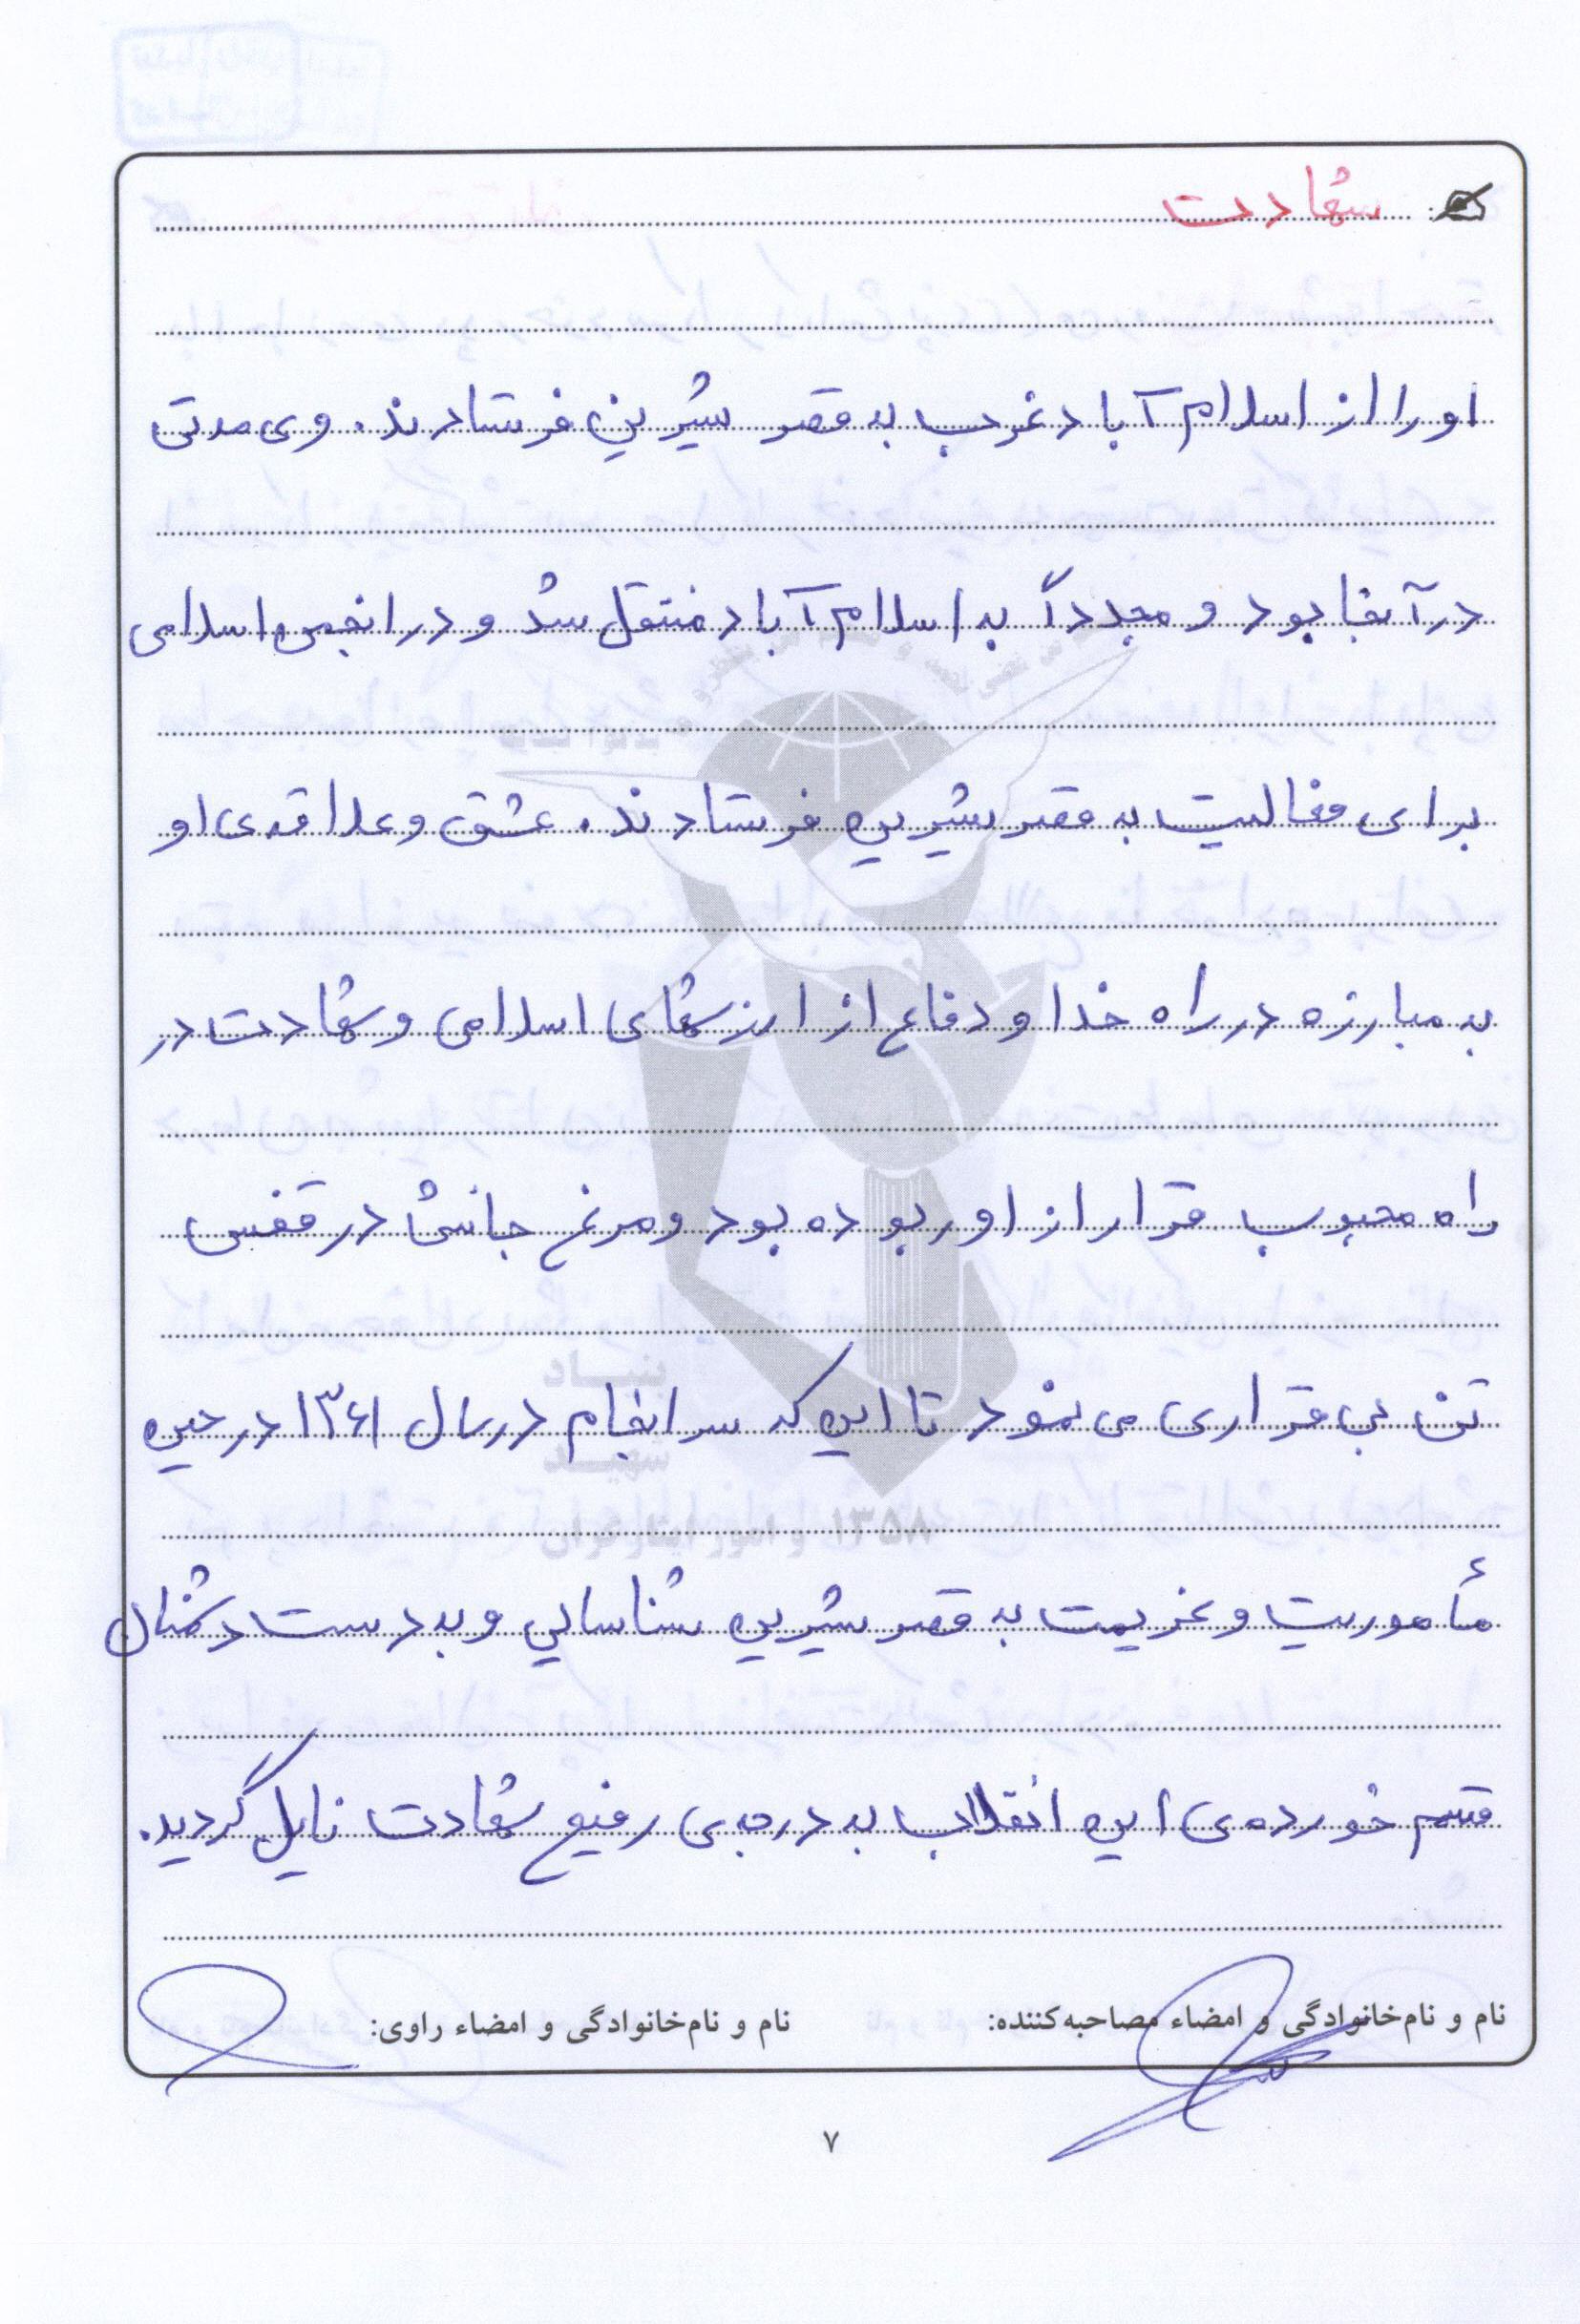 شهادت
او را از اسلام آباد غرب به قصر شیرین فرستادند. وی مدتی
در آنجا بود و مجدداً به اسلام آباد منتقل شد و در انجمن اسلامی
برای فعالیت به قصر شیرین فرستادند. عشق و علاقه ی او
به مبارزه در راه خدا و دفاع از ارزشهای اسلامی و شهادت در
راه محبوب قرار از او ربوده بود و مرغ جانش در قفس
تن بی قراری می نمود تا این که سرانجام در سال ۱۳۶۱ در حین
مأموریت و عزیمت به قصر شیرین شناسایی و به دست دشمنان
قسم خورده ی این انقلاب به درجه ی رفیع شهادت نایل گردید.
بنیاد
شهید
و امور ایثارگران ۱۳۵۸
نام و نام‌خانوادگی و امضاء مصاحبه‌کننده: نام و نام‌خانوادگی و امضاء راوی:
۷